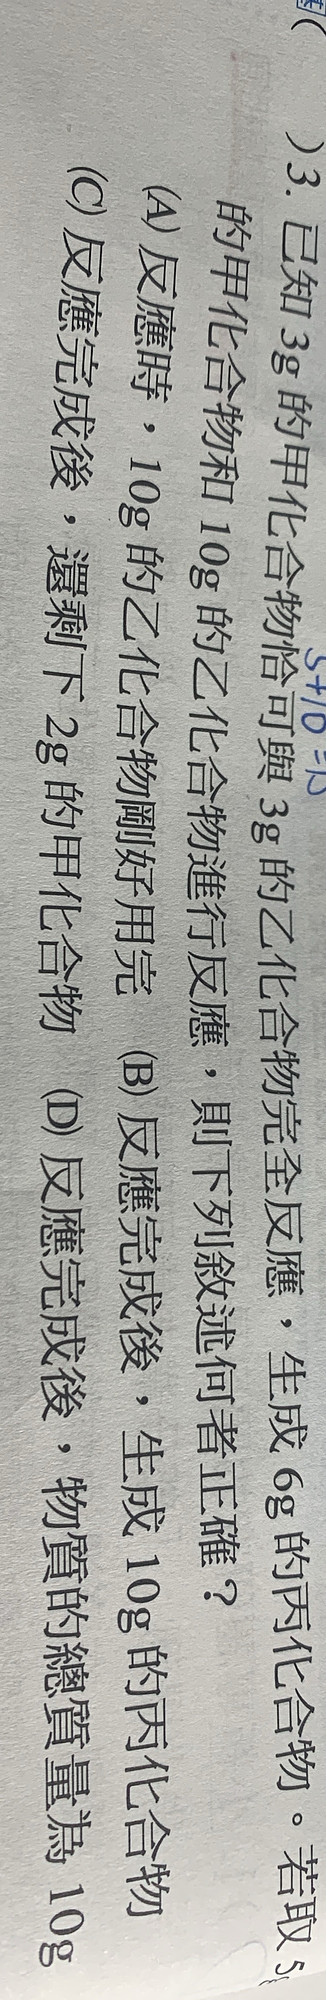 ( )3. 已知 3g 的甲化合物恰可與 3g 的乙化合物完全反應，生成 6g 的丙化合物。若取 5g
5+10=15
的甲化合物和 10g 的乙化合物進行反應，則下列敘述何者正確？
(A) 反應時，10g 的乙化合物剛好用完 (B) 反應完成後，生成 10g 的丙化合物
(C) 反應完成後，還剩下 2g 的甲化合物 (D) 反應完成後，物質的總質量為 10g